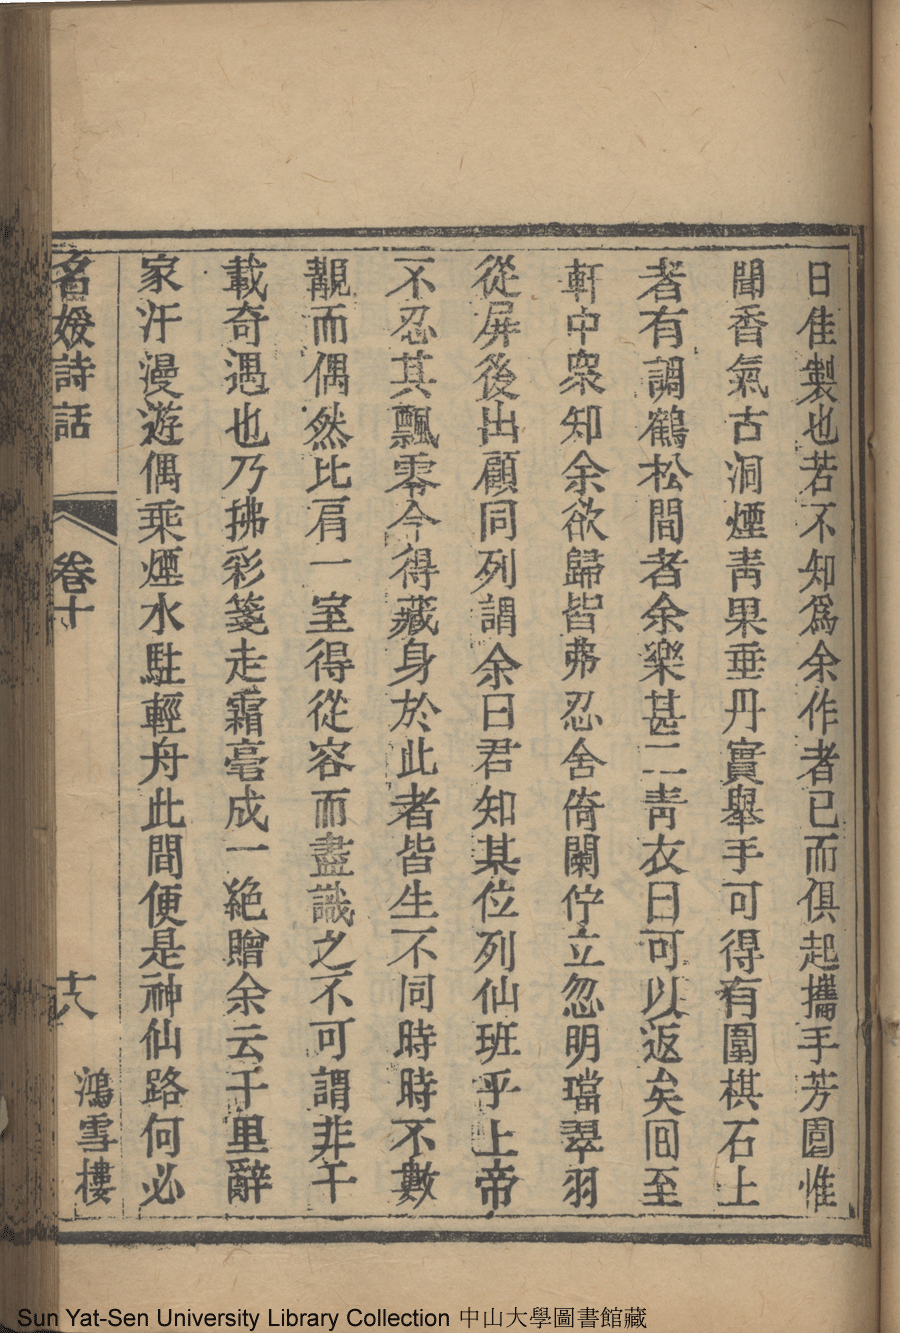 日佳製也若不知爲余作者已而俱起攜手芳園惟
聞香氣古洞煙靑果垂丹實舉手可得有圍棋石上
者有調鶴松間者余樂甚二靑衣曰可以返矣囘至
軒中衆知余欲歸皆弗忍舍倚闌佇立忽明璫翠羽
從屏後出顧同列謂余曰君知某位列仙班乎上帝
不忍其飄零今得藏身於此者皆生不同時時不數
覯而偶然比肩一室得從容而盡識之不可謂非千
載奇遇也乃拂彩箋走霜毫成一絶贈余云千里辭
家汗漫遊偶乘煙水駐輕舟此間便是神仙路何必
名媛詩話 卷十 十八 鴻雪樓
Sun Yat-Sen University Library Collection 中山大學圖書館藏